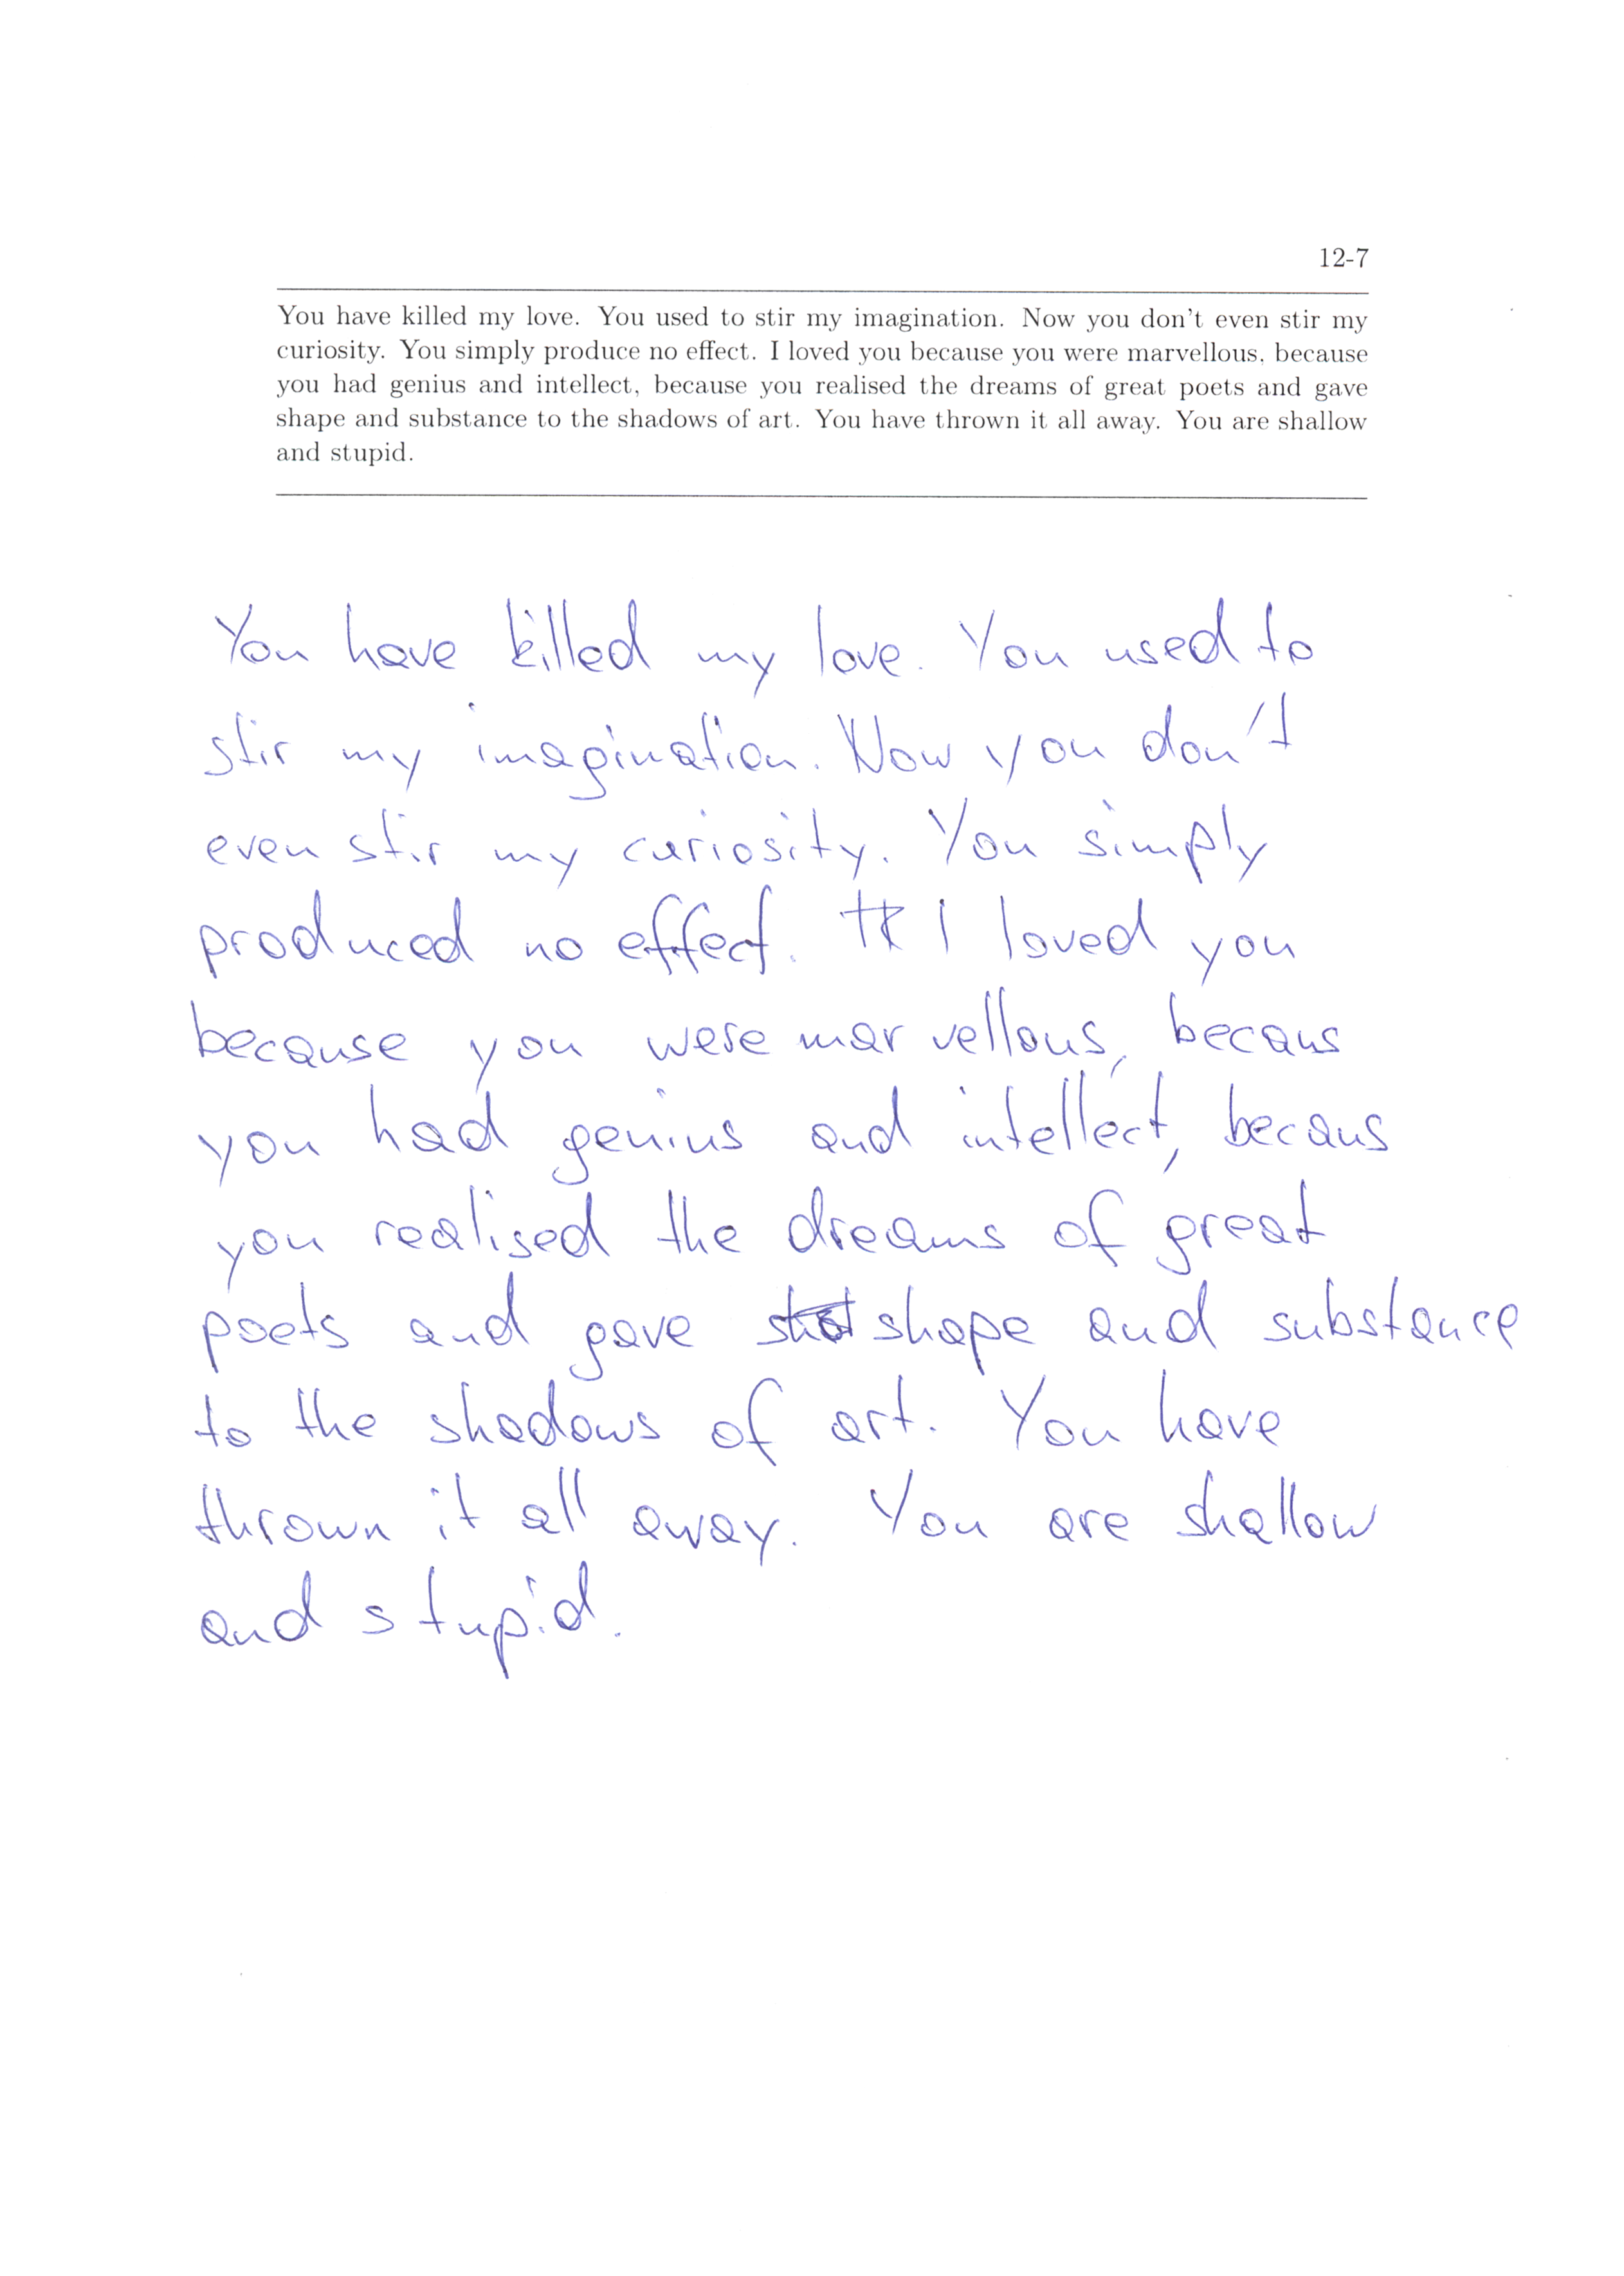 12-7
You have killed my love. You used to stir my imagination. Now you don't even stir my
curiosity. You simply produce no effect. I loved you because you were marvellous, because
you had genius and intellect, because you realised the dreams of great poets and gave
shape and substance to the shadows of art. You have thrown it all away. You are shallow
and stupid.
You have killed my love. You used to
stir my imagination. Now you don't
even stir my curiosity. You simply
produced no effect. I loved you
because you were marvellous, becaus
you had genius and intellect, becaus
you realised the dreams of great
poets and gave shape and substance
to the shadows of art. You have
thrown it all away. You are shallow
and stupid.